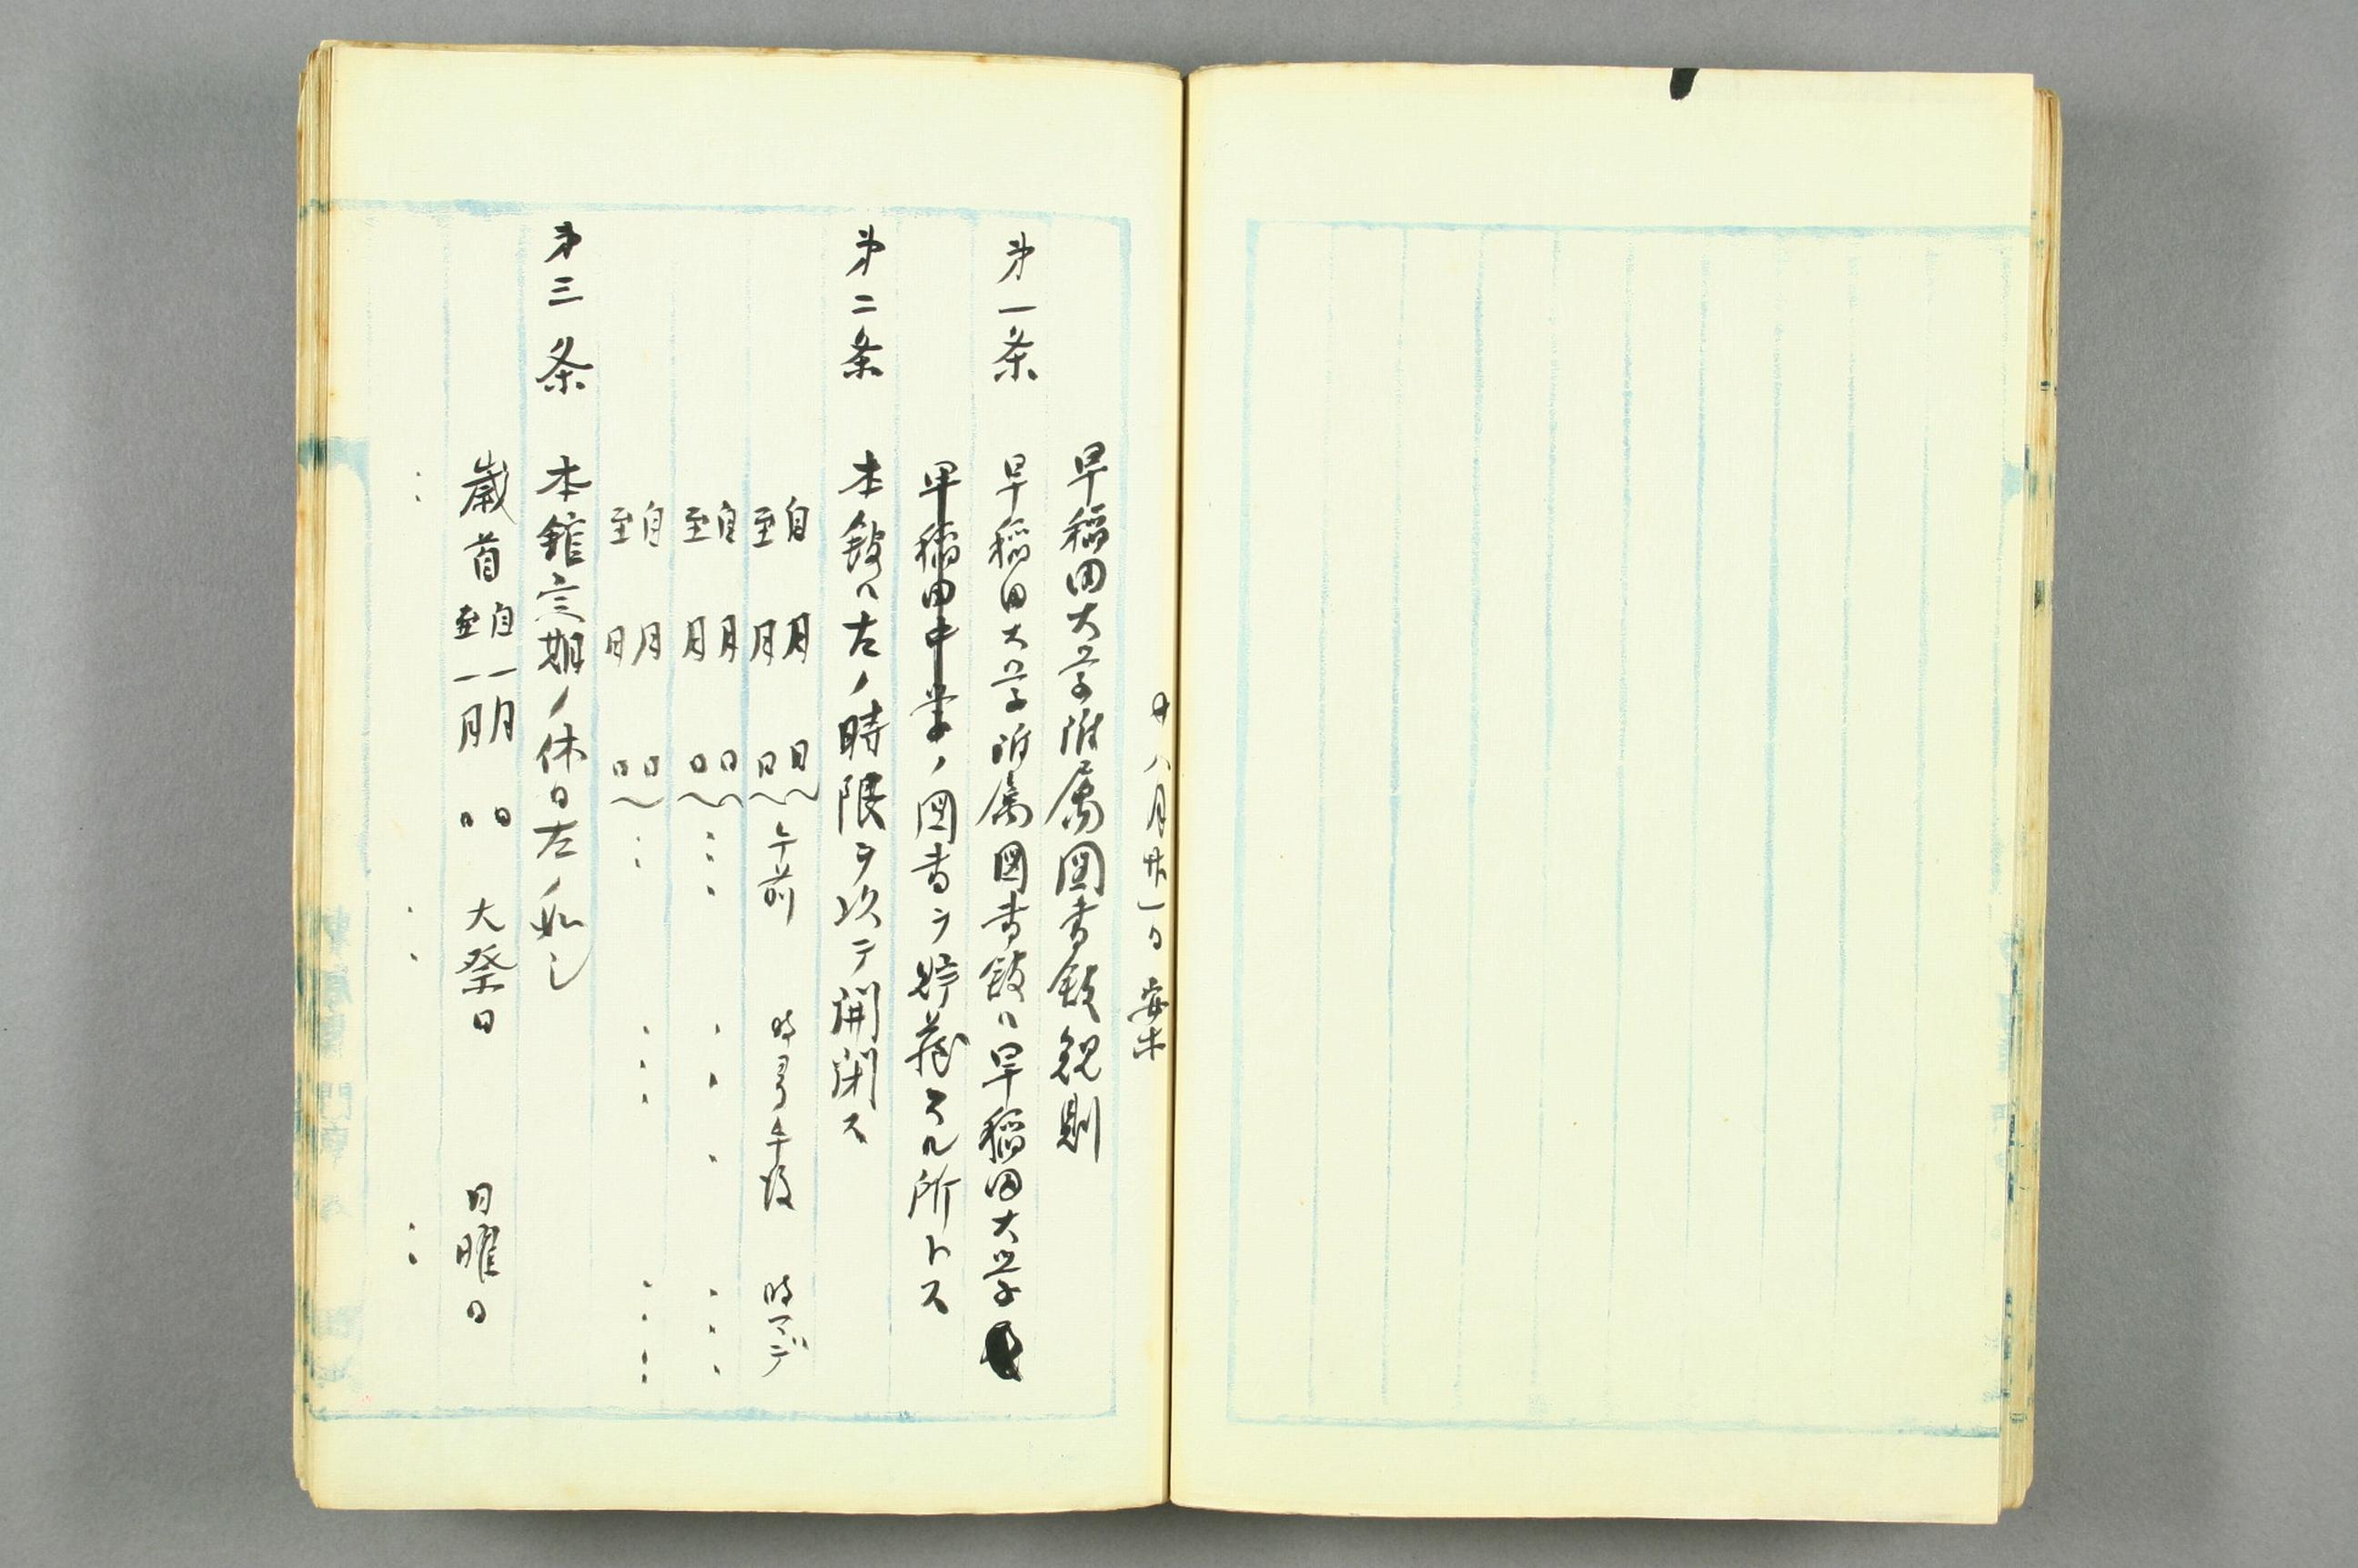 八月廿一日 案
早稲田大学附属図書館規則
第一条 早稲田大学附属図書館ハ早稲田大学
早稲田中学ノ図書ヲ貯蔵スル所トス
第二条 本館ハ左ノ時限ヲ以テ開閉ス
自 月 日 至 月 日 午前 時ヨリ午後 時マデ
自 月 日 至 月 日 〃 〃 〃
自 月 日 至 月 日 〃 〃 〃
第三条 本館定期ノ休日左ノ如シ
歳首 自一月 日 至一月 日 大祭日 日曜日